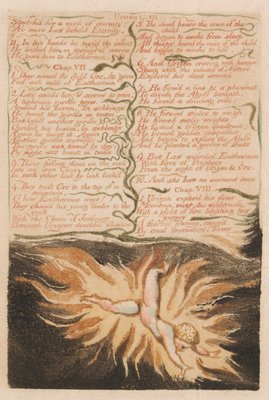 Urizen C: VII
Stretch'd for a work of eternity
No more Los beheld Eternity.
In his hands he seiz'd the infant
He bathed him in springs of sorrow
He gave him to Enitharmon.
Chap. VII.
1. They named the child Orc, he grew
Fed with milk of Enitharmon
2. Los awoke her; O sorrow & pain!
A tight'ning girdle grew,
Around his bosom. In sobbings
He burst the girdle in twain,
But still another girdle
Oppress'd his bosom, In sobbings
Again he burst it. Again
Another girdle succeeds
The girdle was form'd by day;
By night was burst in twain.
3. These falling down on the rock
Into an iron Chain
In each other link by link lock'd
4. They took Orc to the top of a
mountain.
O how Enitharmon wept!
They chain'd his young limbs to the
rock
With the Chain of Jealousy
Beneath Urizens deathful shadow
5. The dead heard the voice of the
child
And began to awake from sleep
All things heard the voice of the child
And began to awake to life.
6. And Urizen craving with hunger
Stung with the odours of Nature
Explor'd his dens around
7. He form'd a line & a plummet
To divide the Abyss beneath.
He form'd a dividing rule:
8. He formed scales to weigh;
He formed massy weights;
He formed a brazen quadrant;
He formed golden compasses
And began to explore the Abyss
And he planted a garden of fruits
9. But Los encircled Enitharmon
With fires of Prophecy
From the sight of Urizen & Orc.
10. And she bore an enormous race
Chap. VIII.
1. Urizen explor'd his dens
Mountain, moor, & wilderness,
With a globe of fire lighting his
journey
A fearful journey, annoy'd
By cruel enormities: forms